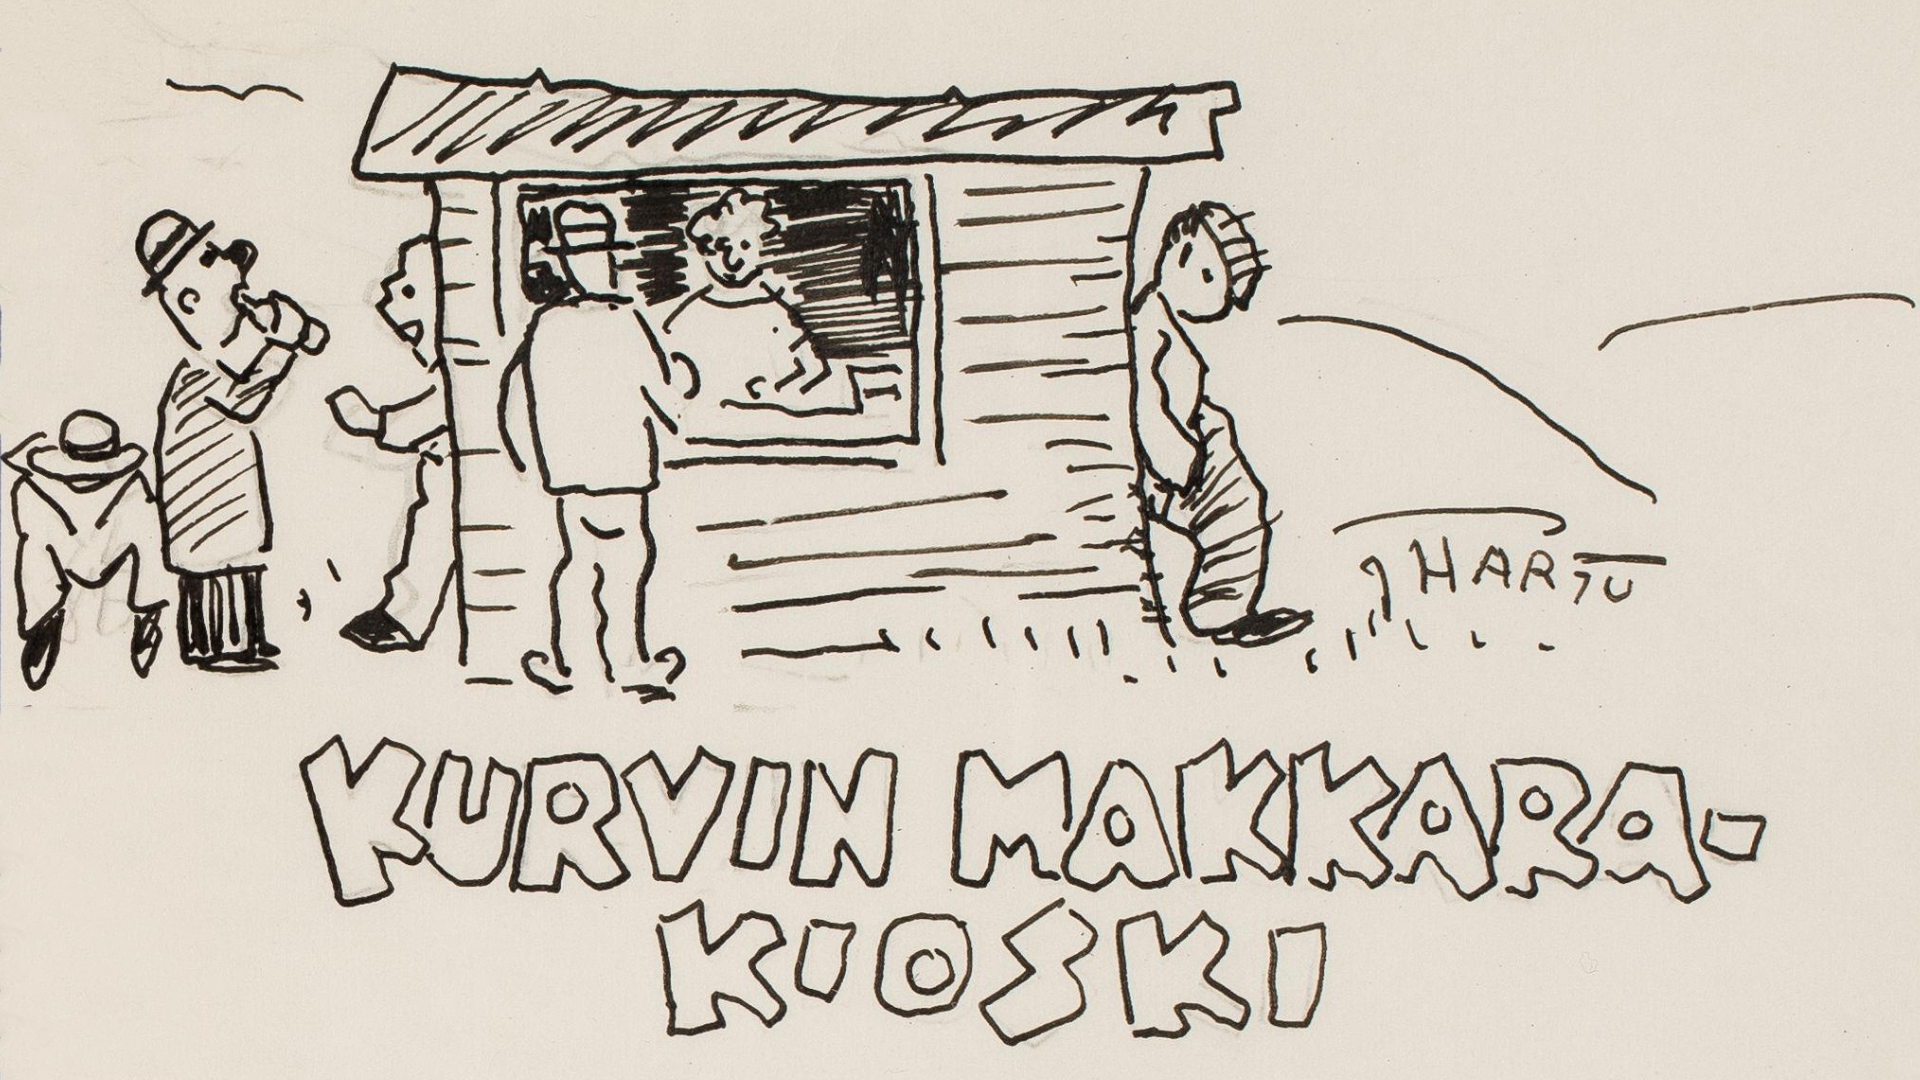 J HARTU
KURVIN MAKKARA-
KIOSKI